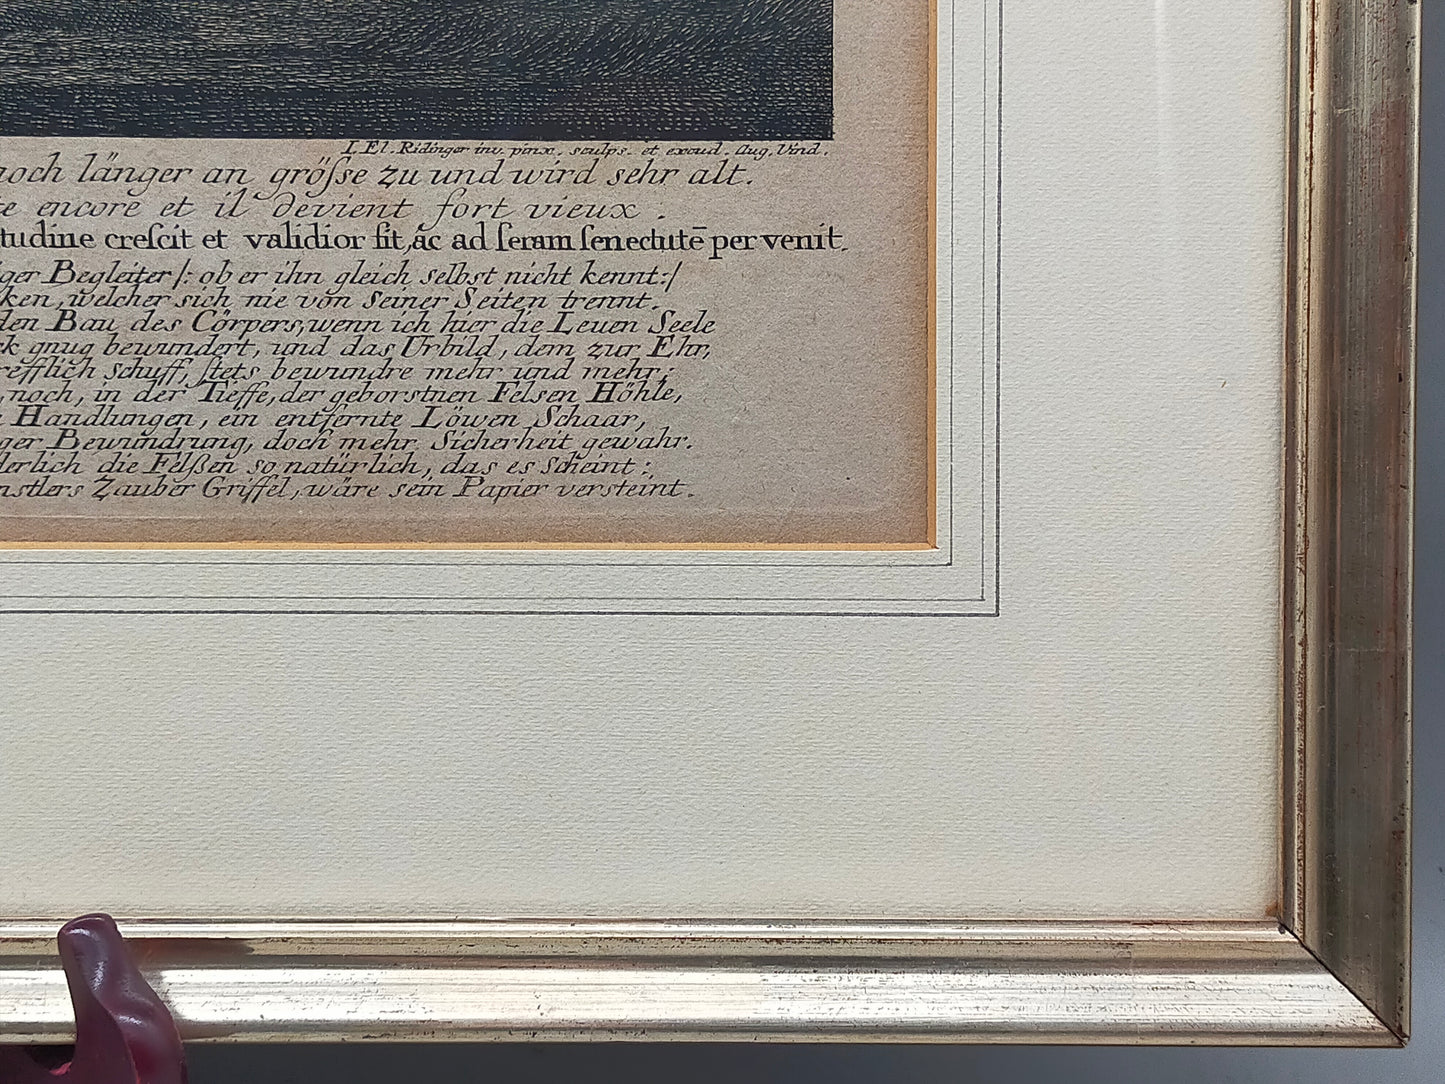 I. El. Ridinger inv. pinx. sculps. et excud. Aug. Vind.
noch länger an gröſse zu und wird sehr alt.
encore et il devient fort vieux.
tudine creſcit et validior fit, ac ad ſeram ſenectutē per venit.
ger Begleiter /: ob er ihn gleich selbst nicht kennt :/
ken, welcher sich nie von Seiner Seiten trennt.
den Bau des Cörpers, wenn ich hier die Leuen Seele
ck gnug bewundert, und das Urbild, dem zur Ehr,
refflich schuff, ſtets bewundre mehr und mehr;
noch, in der Tieffe, der geborstnen Felsen Höhle,
Handlungen, ein entfernte Löwen Schaar,
ger Bewundrung, doch mehr Sicherheit gewahr.
derlich die Felßen so natürlich, das es scheint:
nstlers Zauber Griffel, wäre sein Papier versteint.